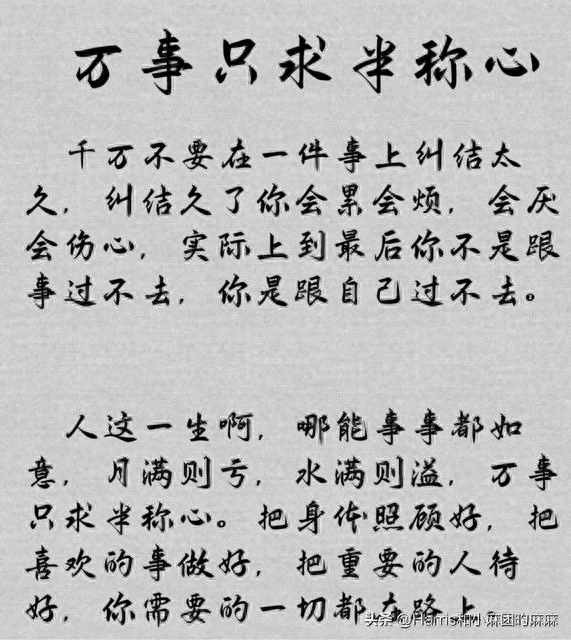 万事只求半称心
千万不要在一件事上纠结太
久，纠结久了你会累会烦，会厌
会伤心，实际上到最后你不是跟
事过不去，你是跟自己过不去。
人这一生啊，哪能事事都如
意，月满则亏，水满则溢，万事
只求半称心。把身体照顾好，把
喜欢的事做好，把重要的人待
好，你需要的一切都在路上。
头条 @Harris和小麻团的麻麻